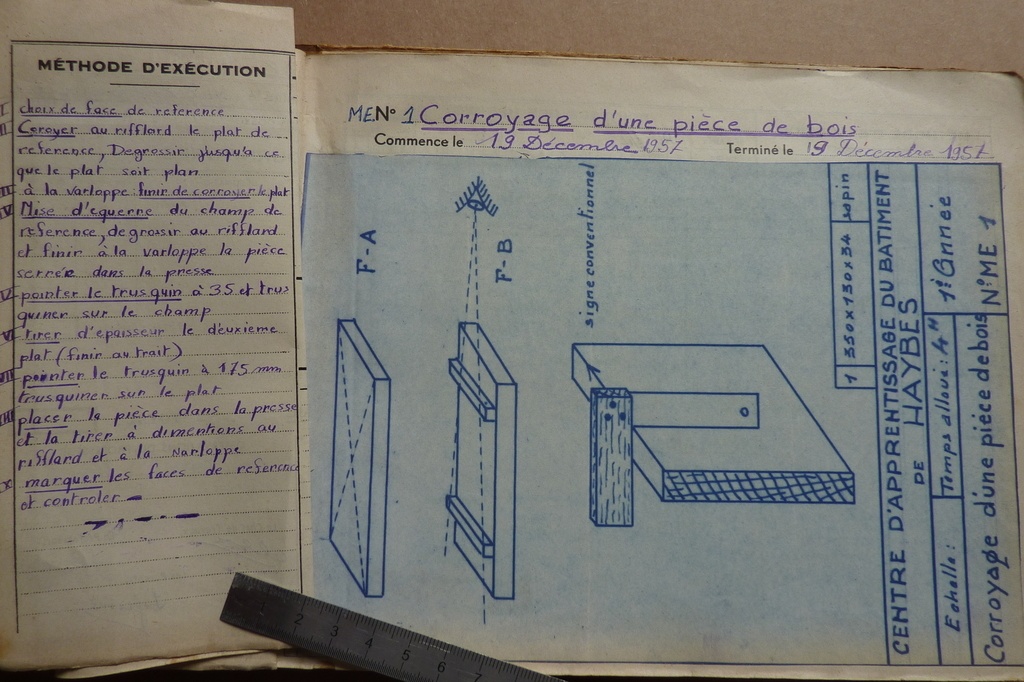 MÉTHODE D'EXÉCUTION
I choix de face de reference
II Coroyer au rifflard le plat de
reference, Degrossir jusqu'a ce
que le plat soit plan
III à la varloppe finir de corroyer le plat
IV Mise d'equerre du champ de
reference, degrossir au rifflard
et finir à la varloppe la pièce
serrée dans la presse
V pointer le trusquin à 35 et trus
quiner sur le champ
VI tirer d'epaisseur le deuxieme
plat (finir au trait)
VII pointer le trusquin à 175 mm
trusquiner sur le plat
VIII placer la pièce dans la presse
et la tirer à dimentions au
rifflard et à la varloppe
IX marquer les faces de reference
et controler
ME N° 1 Corroyage d'une pièce de bois
Commencé le 19 Décembre 1957 Terminé le 19 Décembre 1957
F-A
F-B
signe conventionnel
1 350x130x34 sapin
CENTRE D'APPRENTISSAGE DU BATIMENT
DE HAYBES
Echelle: Temps alloué: 4H 1° Année
Corroyage d'une pièce de bois N° ME 1
2 3 4 5 6 7